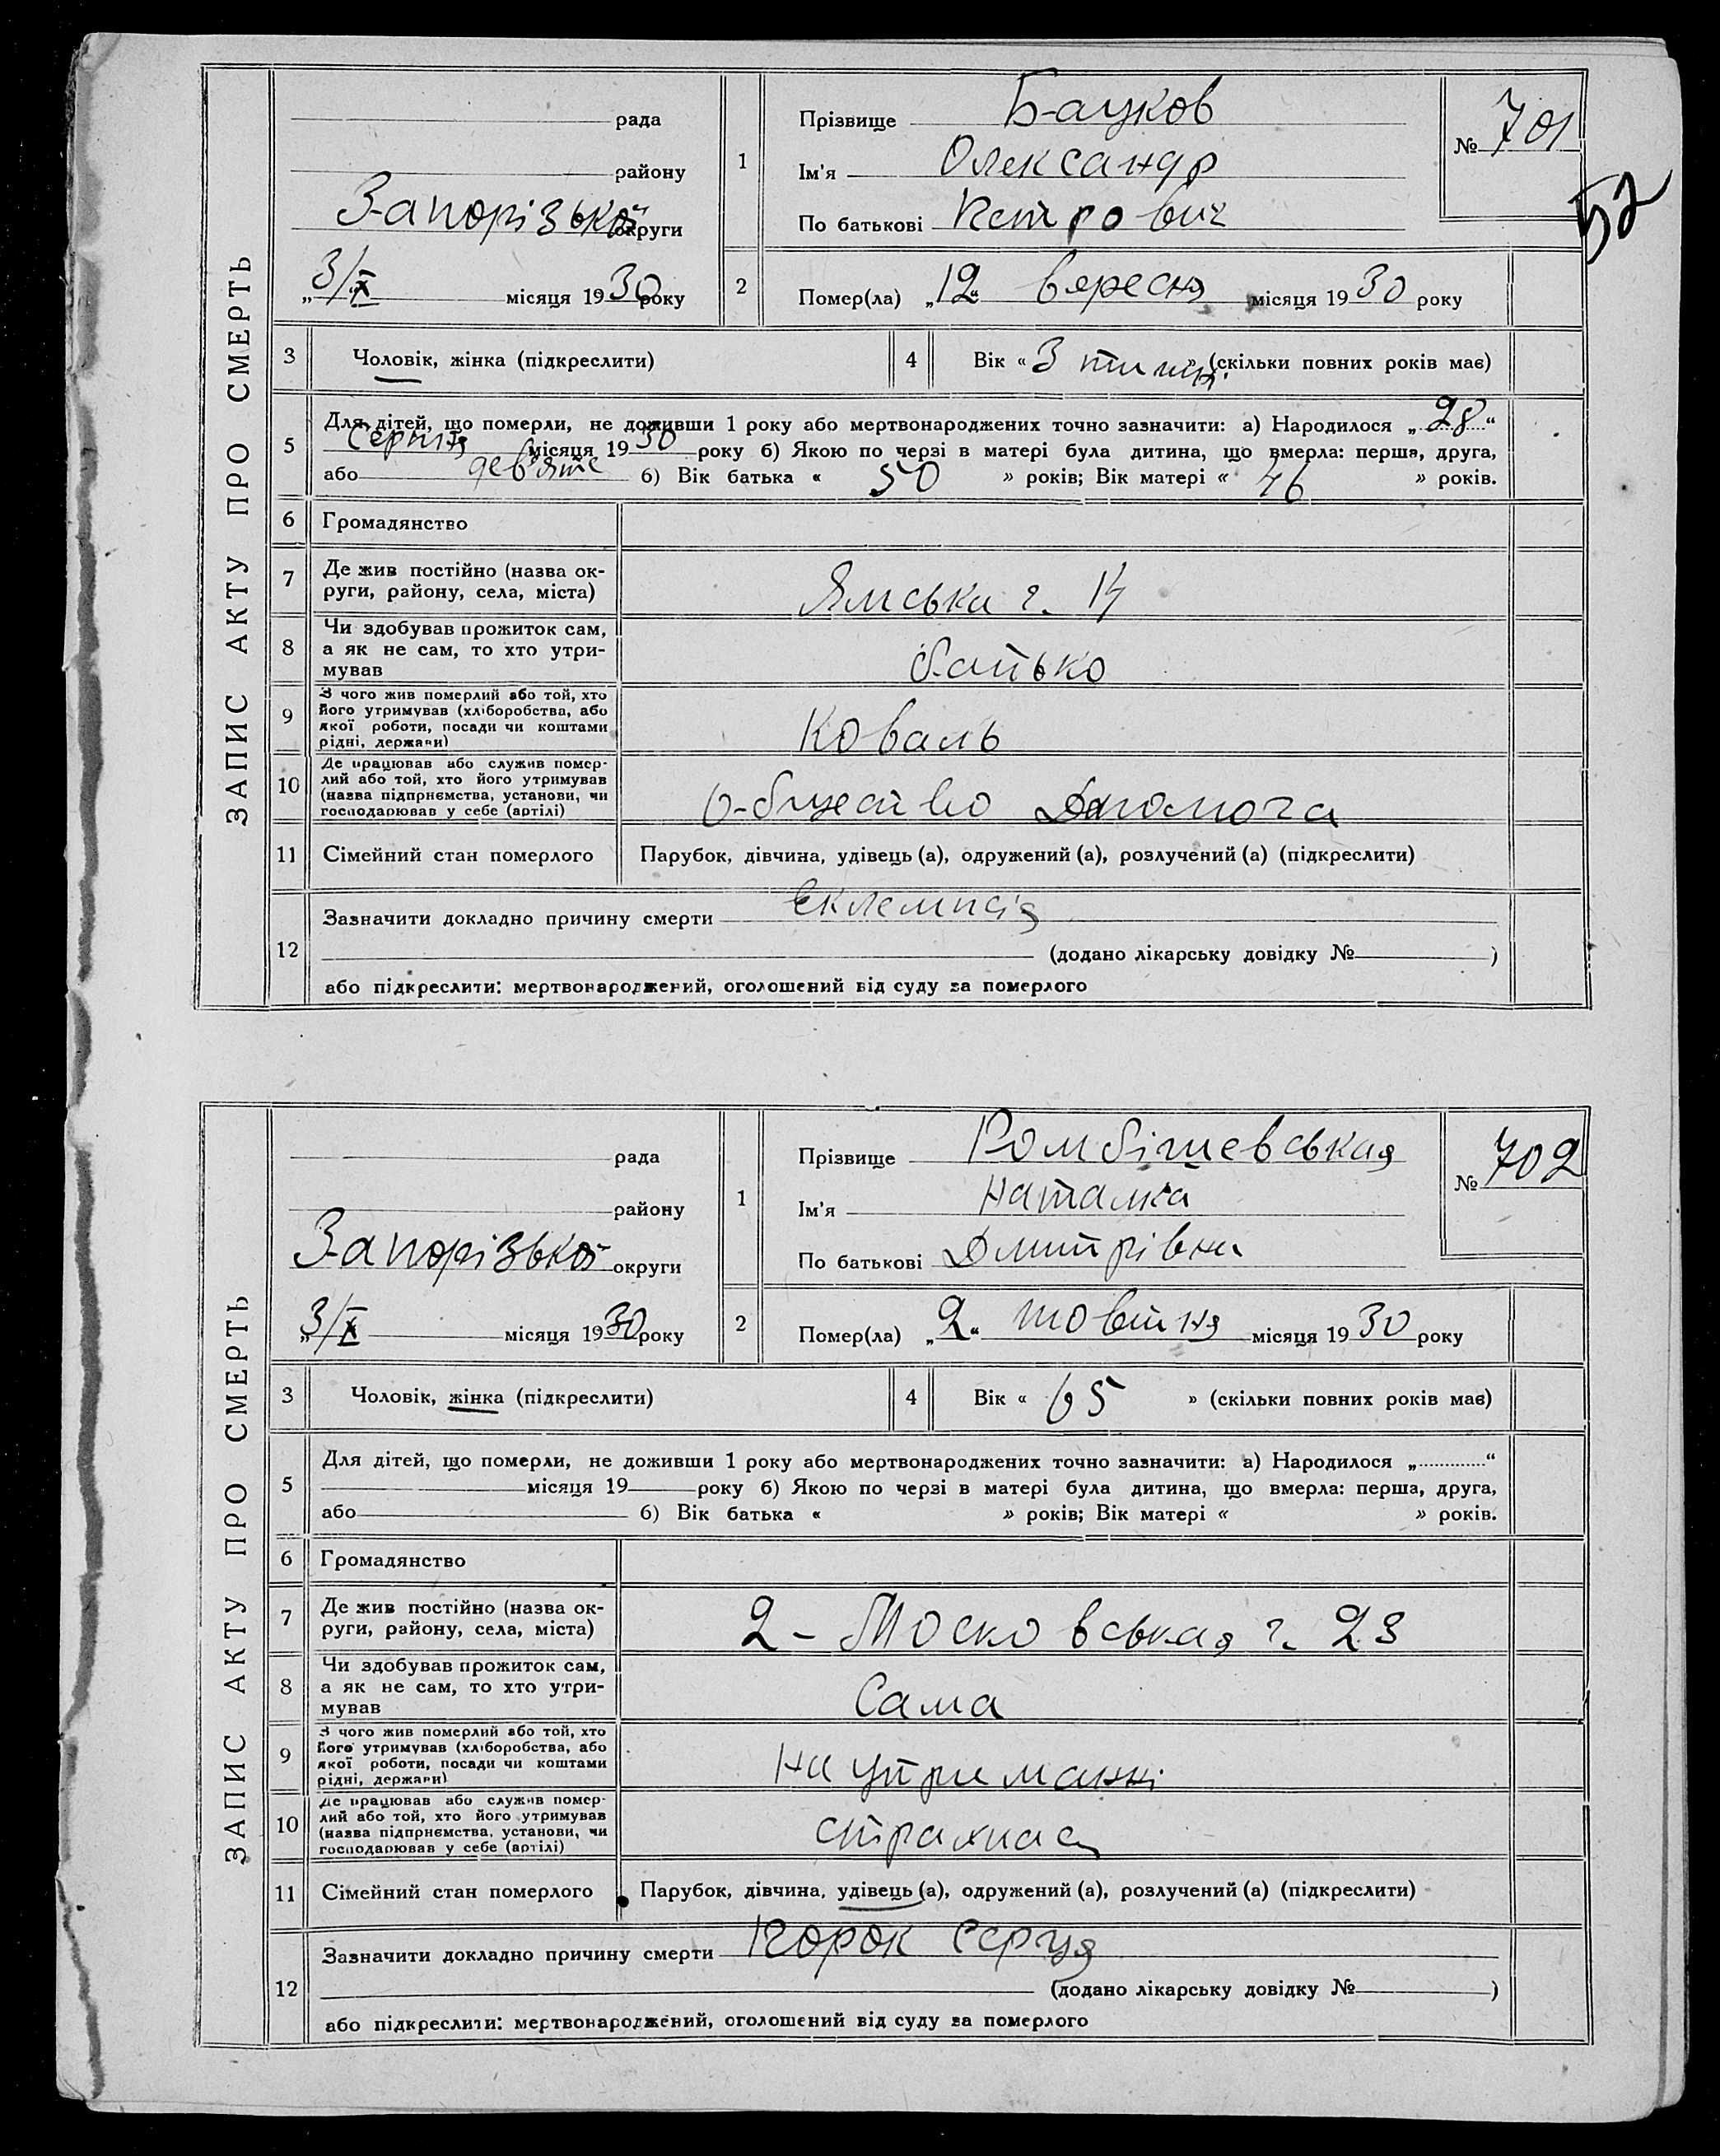 ЗАПИС АКТУ ПРО СМЕРТЬ
рада
району
Запорізької округи
„3/X місяця 1930 року
1
Прізвище Бауков
Ім'я Олександр
По батькові Петрович
№ 701
52
2
Помер(ла) „12“ вересня місяця 1930 року
3
Чоловік, жінка (підкреслити)
4
Вік « 3 тижні » (скільки повних років має)
5
Для дітей, що померли, не доживши 1 року або мертвонароджених точно зазначити: а) Народилося „28“
Серпня місяця 1930 року б) Якою по черзі в матері була дитина, що вмерла: перша, друга,
або дев'яте б) Вік батька « 50 » років; Вік матері « 46 » років.
6
Громадянство
7
Де жив постійно (назва ок-
руги, району, села, міста)
Ямська ч. 14
8
Чи здобував прожиток сам,
а як не сам, то хто утри-
мував
батько
9
З чого жив померлий або той, хто
його утримував (хліборобства, або
якої роботи, посади чи коштами
рідні, держави)
Коваль
10
Де працював або служив помер-
лий або той, хто його утримував
(назва підприємства, установи, чи
господарював у себе (артілі)
Общество Допомога
11
Сімейний стан померлого
Парубок, дівчина, удівець (а), одружений (а), розлучений (а) (підкреслити)
12
Зазначити докладно причину смерти Еклемпсія
(додано лікарську довідку № )
або підкреслити: мертвонароджений, оголошений від суду за померлого
ЗАПИС АКТУ ПРО СМЕРТЬ
рада
району
Запорізької округи
„3/X місяця 1930 року
1
Прізвище Ромбішевськая
Ім'я Наталка
По батькові Дмитрівна
№ 702
2
Помер(ла) „2“ жовтня місяця 1930 року
3
Чоловік, жінка (підкреслити)
4
Вік « 65 » (скільки повних років має)
5
Для дітей, що померли, не доживши 1 року або мертвонароджених точно зазначити: а) Народилося „ “
місяця 19 року б) Якою по черзі в матері була дитина, що вмерла: перша, друга,
або б) Вік батька « » років; Вік матері « » років.
6
Громадянство
7
Де жив постійно (назва ок-
руги, району, села, міста)
2 - Московськая ч. 23
8
Чи здобував прожиток сам,
а як не сам, то хто утри-
мував
Сама
9
З чого жив померлий або той, хто
його утримував (хліборобства, або
якої роботи, посади чи коштами
рідні, держави)
на утриманні
10
Де працював або служив помер-
лий або той, хто його утримував
(назва підприємства, установи, чи
господарював у себе (артілі)
страхкаса
11
Сімейний стан померлого
Парубок, дівчина, удівець (а), одружений (а), розлучений (а) (підкреслити)
12
Зазначити докладно причину смерти Порок серця
(додано лікарську довідку № )
або підкреслити: мертвонароджений, оголошений від суду за померлого